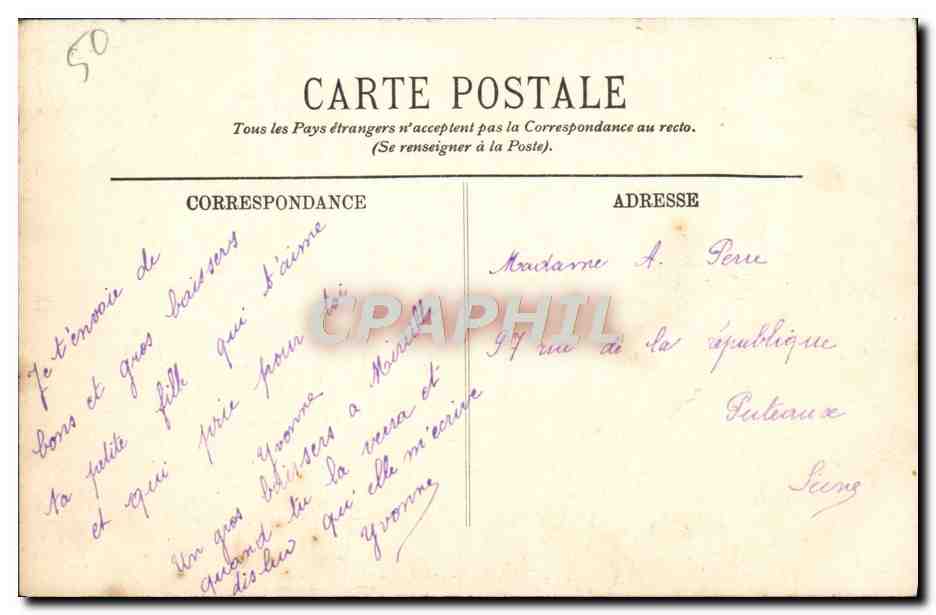 50
CARTE POSTALE
Tous les Pays étrangers n'acceptent pas la Correspondance au recto.
(Se renseigner à la Poste).
CORRESPONDANCE
Je t'envoie de
bons et gros baissers
ta petite fille qui t'aime
et qui prie pour toi
Yvonne
Un gros baissers a Mireille
quand tu la veera et
dis-lui qu'elle m'écrive
Yvonne
ADRESSE
Madame A. Perre
97 rue de la république
Puteaux
Seine
CPAPHIL